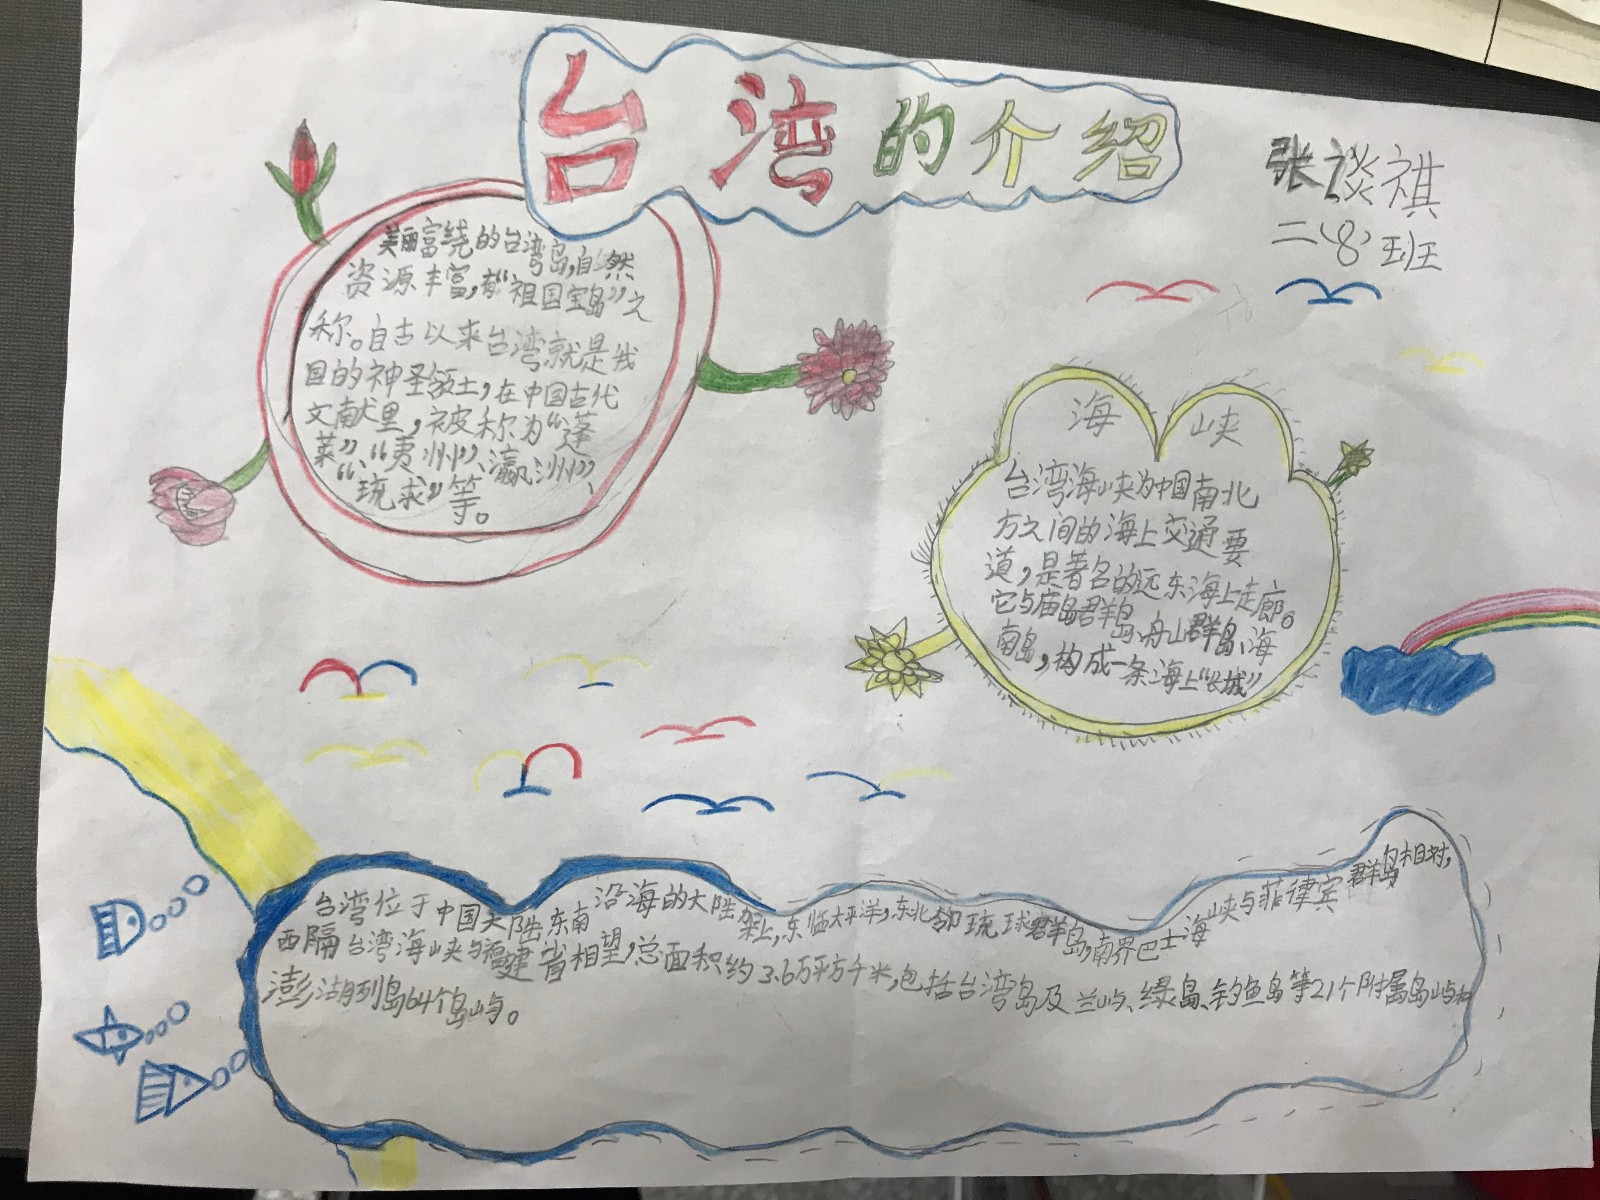 台湾的介绍
张谈祺
二(8)班
美丽富绕的台湾岛,自然
资源丰富,有“祖国宝岛”之
称。自古以来台湾就是我
目的神圣领土,在中国古代
文献里,被称为“蓬
莱”、“夷州”、瀛洲”、
“琉求”等。
海峡
台湾海峡为中国南北
方之间的海上交通要
道,是著名的远东海上走廊。
它与庙岛群岛、舟山群岛、海
南岛,构成一条海上“长城”
台湾位于中国大陆东南沿海的大陆架上,东临太平洋,东北邻琉球群岛,南界巴士海峡与菲律宾群岛相对,
西隔台湾海峡与福建省相望,总面积约3.6万平方千米,包括台湾岛及兰屿、绿岛、钓鱼岛等21个附属岛屿和
澎湖列岛64个岛屿。